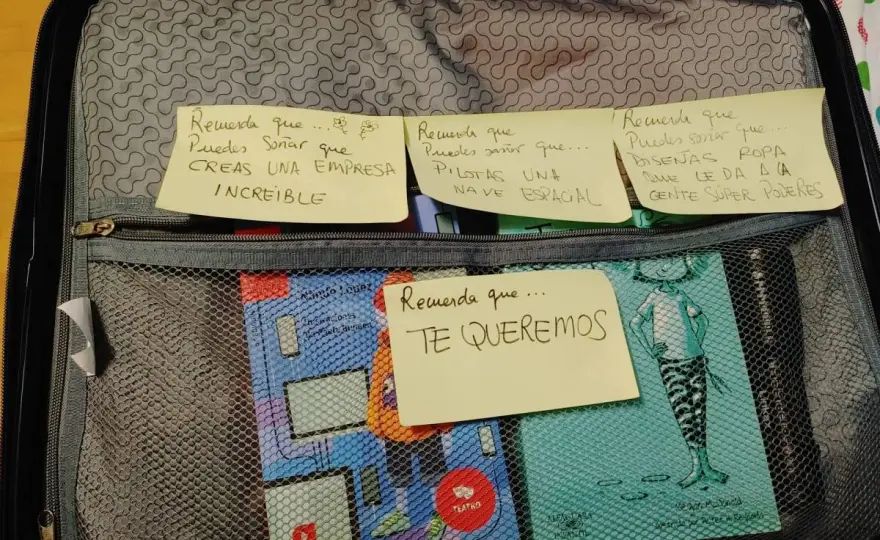 Recuerda que...
Puedes Soñar que
CREAS UNA EMPRESA
INCREIBLE
Recuerda que
Puedes soñar que...
PILOTAS UNA
NAVE ESPACIAL
Recuerda que
Puedes soñar que...
DISEÑAS ROPA
QUE LE DA A LA
GENTE SÚPER PODERES
Recuerda que...
TE QUEREMOS
López
TEATRO